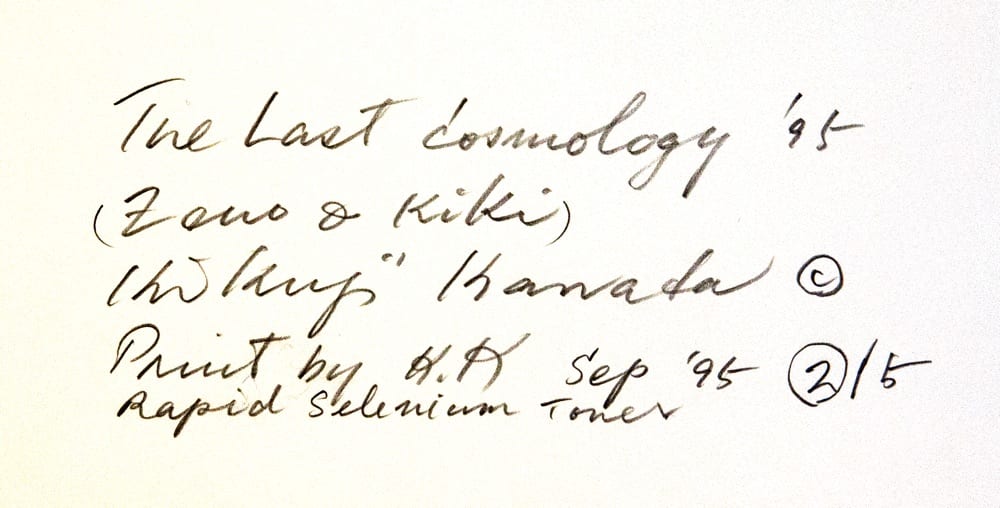 The Last Cosmology '95
(Zeno & Kiki)
Kikuji Kawada ©
Print by K.K Sep '95 ②/5
Rapid Selenium Toner